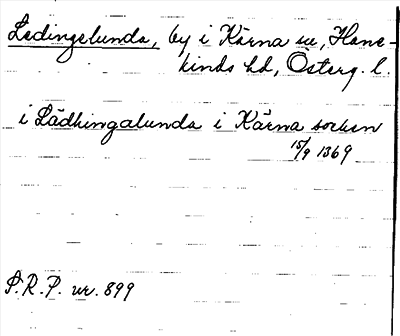 Ledingelunda, by i Kärna sn, Hane-
kinds hd, Österg. l.
i Lädhingalunda i Kärna socken
15/9 1369
S.R.P. nr. 899